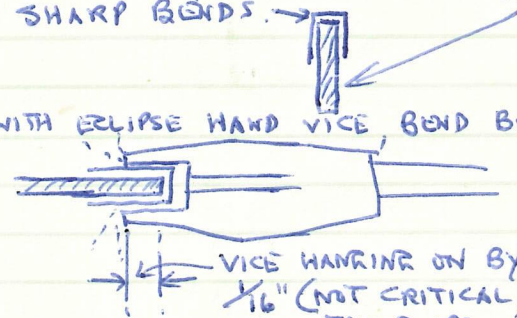 SHARP BENDS.
WITH ECLIPSE HAND VICE BEND
VICE HANGING ON BY
1/16" (NOT CRITICAL